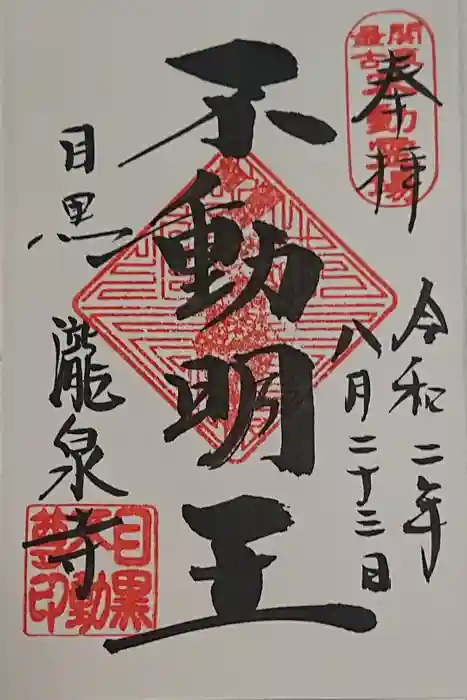 奉拝
関東最古不動霊場
令和二年
八月二十三日
不動明王
目黒
瀧泉寺
目黒不動尊印